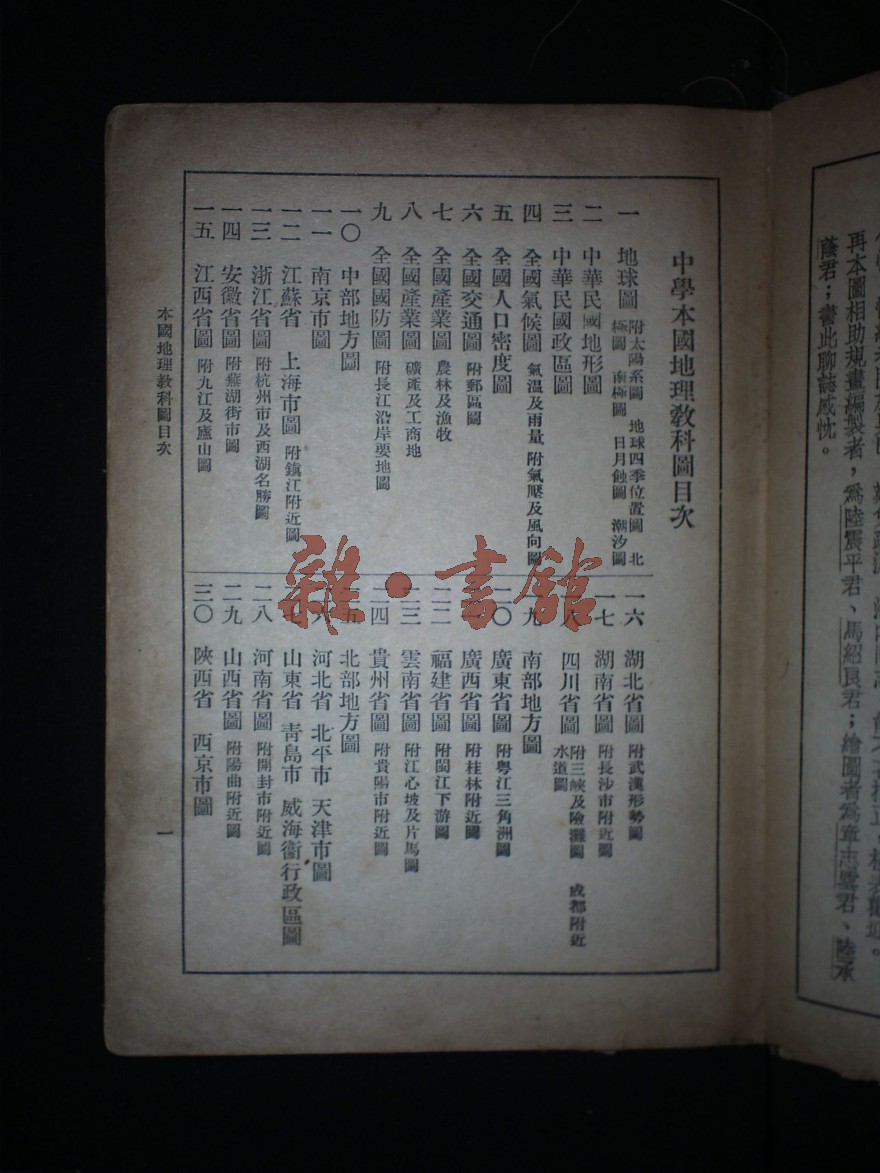 再本圖相助規畫編製者，爲陸震平君、馬紹良君；繪圖者爲童志雲君、陸承
蔭君；書此聊誌感忱。
中學本國地理教科圖目次
一 地球圖 附太陽系圖 地球四季位置圖 北極圖 南極圖 日月蝕圖 潮汐圖
二 中華民國地形圖
三 中華民國政區圖
四 全國氣候圖 氣溫及雨量 附氣壓及風向圖
五 全國人口密度圖
六 全國交通圖 附郵區圖
七 全國產業圖 農林及漁牧
八 全國產業圖 礦產及工商地
九 全國國防圖 附長江沿岸要地圖
一〇 中部地方圖
一一 南京市圖
一二 江蘇省 上海市圖 附鎮江附近圖
一三 浙江省圖 附杭州市及西湖名勝圖
一四 安徽省圖 附蕪湖街市圖
一五 江西省圖 附九江及廬山圖
一六 湖北省圖 附武漢形勢圖
一七 湖南省圖 附長沙市附近圖
一八 四川省圖 附三峽及險灘圖 成都附近水道圖
一九 南部地方圖
二〇 廣東省圖 附粵江三角洲圖
二一 廣西省圖 附桂林附近圖
二二 福建省圖 附閩江下游圖
二三 雲南省圖 附江心坡及片馬圖
二四 貴州省圖 附貴陽市附近圖
二五 北部地方圖
二六 河北省 北平市 天津市圖
二七 山東省 青島市 威海衛行政區圖
二八 河南省圖 附開封市附近圖
二九 山西省圖 附陽曲附近圖
三〇 陝西省 西京市圖
本國地理教科圖目次
一
雜·書館